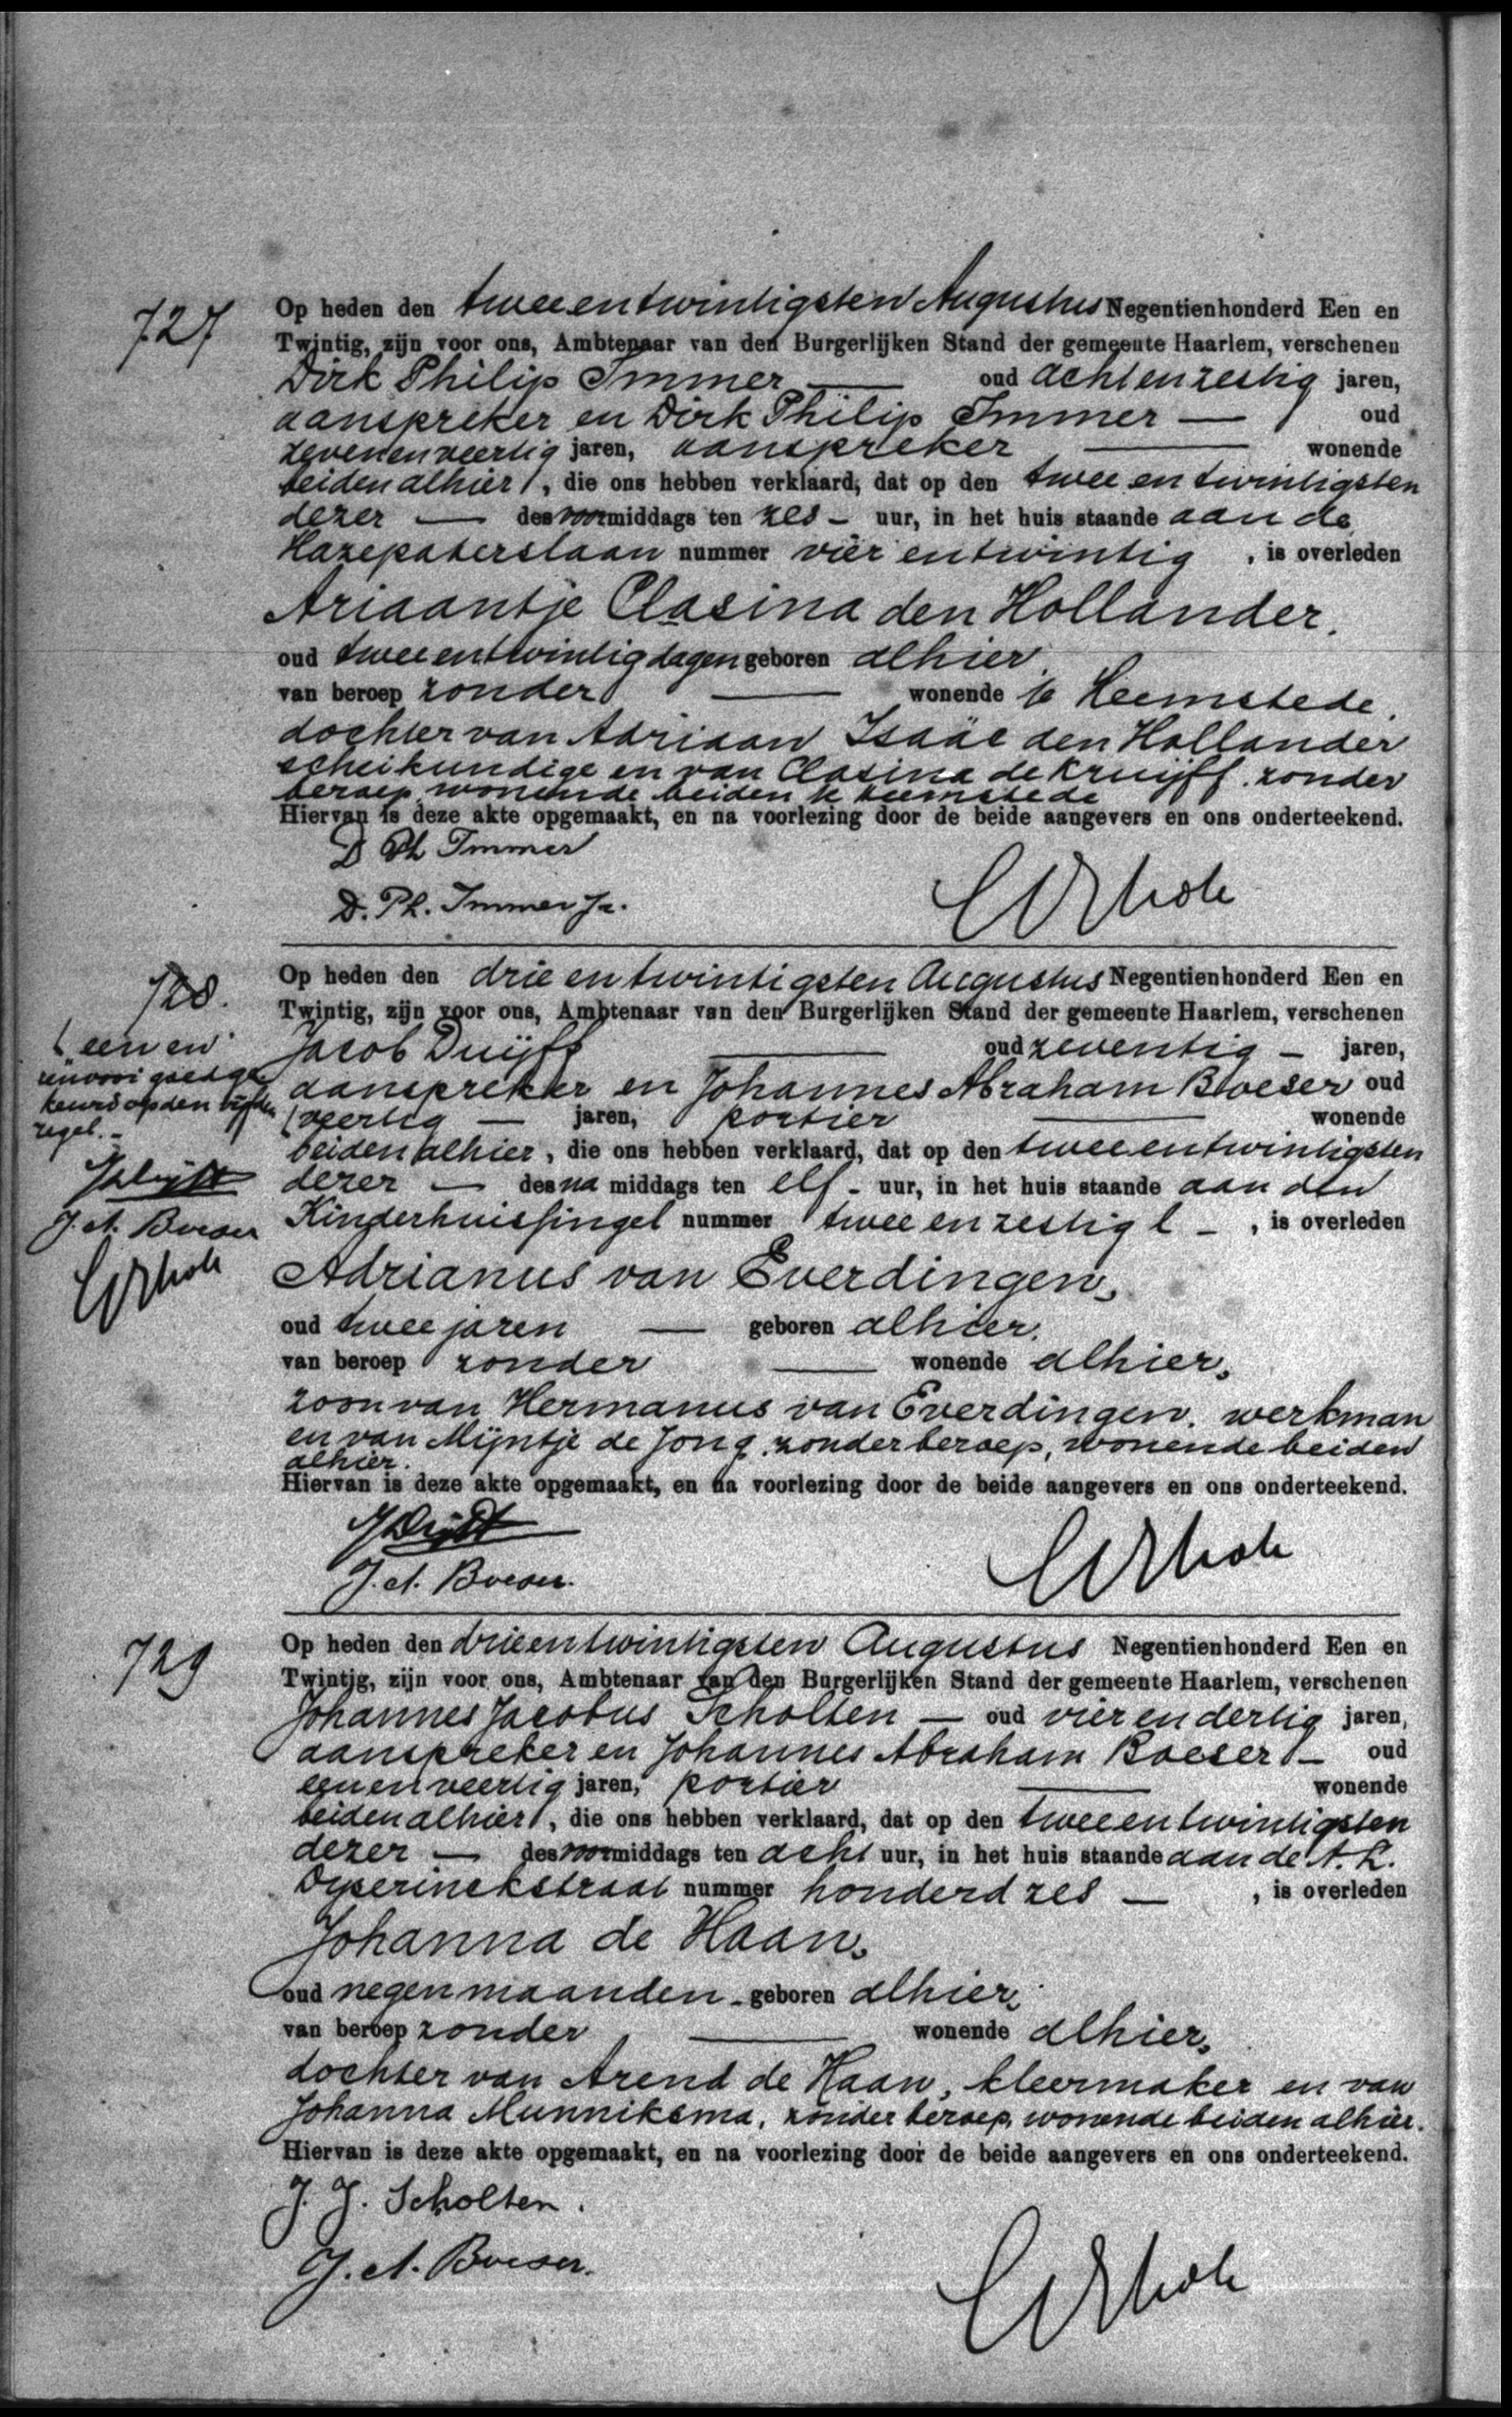 727
Op heden den tweeentwintigsten Augustus Negentienhonderd Een en
Twintig, zijn voor ons, Ambtenaar van den Burgerlijken Stand der gemeente Haarlem, verschenen
Dirk Philip Immer — oud achtenzestig jaren,
aanspreker en Dirk Philip Immer — oud
zevenenveertig jaren, aanspreker — wonende
beiden alhier, die ons hebben verklaard, dat op den twee en twintigsten
dezer — des voormiddags ten zes - uur, in het huis staande aan de
Hazepaterslaan nummer vier entwintig, is overleden
Ariaantje Clasina den Hollander.
oud tweeentwintig dagen geboren alhier.
van beroep zonder — wonende te Heemstede.
dochter van Adriaan Isaäc den Hollander
scheikundige en van Clasina de Kruijff. zonder
beroep, wonende beiden te Heemstede
Hiervan is deze akte opgemaakt, en na voorlezing door de beide aangevers en ons onderteekend.
D Ph Immer
D. Ph. Immer Jr.
728.
Op heden den drie en twintigsten Augustus Negentienhonderd Een en
Twintig, zijn voor ons, Ambtenaar van den Burgerlijken Stand der gemeente Haarlem, verschenen
Jacob Duijff — oud zeventig - jaren,
aanspreker en Johannes Abraham Boeser oud
veertig — jaren, portier — wonende
beiden alhier, die ons hebben verklaard, dat op den tweeentwintigsten
dezer — des na middags ten elf - uur, in het huis staande aan den
Kinderhuissingel nummer twee en zestig l -, is overleden
Adrianus van Everdingen,
oud twee jaren — geboren alhier.
van beroep zonder — wonende alhier,
zoon van Hermanus van Everdingen. werkman
en van Mijntje de Jong. zonder beroep, wonende beiden
alhier.
Hiervan is deze akte opgemaakt, en na voorlezing door de beide aangevers en ons onderteekend.
JDuijff
J. A. Boeser.
een en
renvooi goedge
keurd op den vijfden
regel. -
JDuijff
J. A. Boeser
729
Op heden den drieentwintigsten Augustus Negentienhonderd Een en
Twintig, zijn voor ons, Ambtenaar van den Burgerlijken Stand der gemeente Haarlem, verschenen
Johannes Jacobus Scholten — oud vierendertig jaren,
aanspreker en Johannes Abraham Boeser — oud
eenenveertig jaren, portier — wonende
beiden alhier, die ons hebben verklaard, dat op den tweeentwintigsten
dezer — des voormiddags ten acht uur, in het huis staande aan de A. L.
Dyserinckstraat nummer honderd zes —, is overleden
Johanna de Haan,
oud negen maanden - geboren alhier,
van beroep zonder — wonende alhier,
dochter van Arend de Haan, kleermaker en van
Johanna Munniksma, zonder beroep, wonende beiden alhier.
Hiervan is deze akte opgemaakt, en na voorlezing door de beide aangevers en ons onderteekend.
J. J. Scholten.
J. A. Boeser.